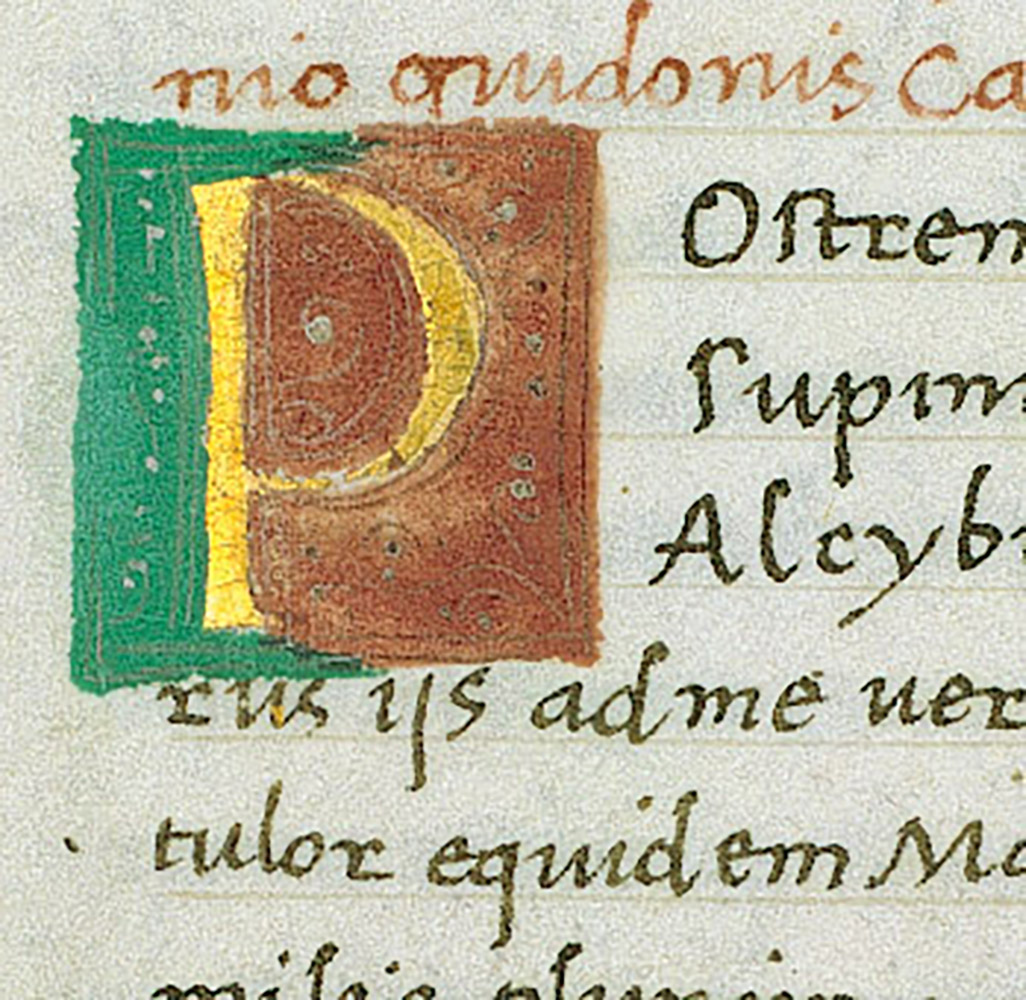 nio guidonis Ca
P
Ostrem
supim
Alcybi
rus ijs ad me uer
tulor equidem Ma